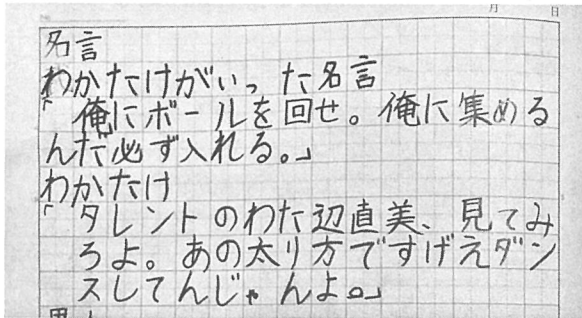 月 日
名言
わかたけがいった名言
「俺にボールを回せ。俺に集める
んだ必ず入れる。」
わかたけ
「タレントのわた辺直美、見てみ
ろよ。あの太り方ですげえダン
スしてんじゃんよ。」